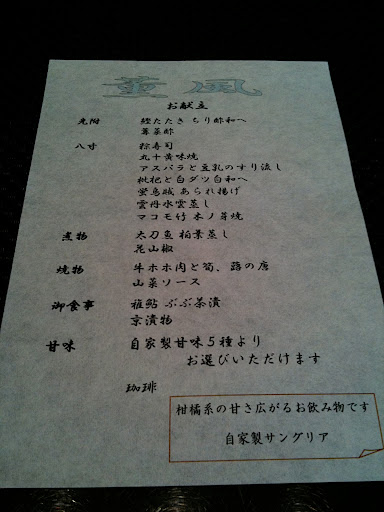 薫風
お献立
先附 鰹たたき ちり酢和へ
蓴菜酢
八寸 粽寿司
丸十黄味焼
アスパラと豆乳のすり流し
枇杷と白ダツ白和へ
蛍烏賊 あられ揚げ
雲丹水雲蒸し
マコモ竹 木ノ芽焼
煮物 太刀魚 柏葉蒸し
花山椒
焼物 牛ホホ肉と筍、蕗の唐
山菜ソース
御食事 稚鮎 ぶぶ茶漬
京漬物
甘味 自家製甘味5種より
お選びいただけます
珈琲
柑橘系の甘さ広がるお飲み物です
自家製サングリア